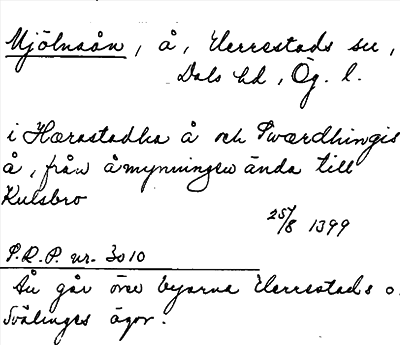 Mjölnaån, å, Herrestads sn,
Dals hd, Ög. l.
i Hærastadha å och Swærdhingis
å, från åmynningen ända till
Kulsbro
25/8 1399
S.R.P. nr. 3010
Ån går öve byarna Herrestads o.
Svälinges ägor.